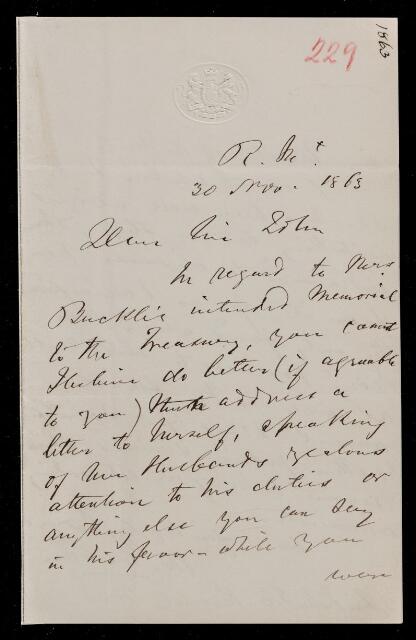 1863
229
R. Mt.
30 Nov. 1863
Dear Sir John
In regard to Mrs.
Buckle's intended Memorial
to the Treasury, you cannot
I believe do better (if agreeable
to you) than address a
letter to herself, speaking
of her Husband's zealous
attention to his duties or
anything else you can say
in his favor - while you
were